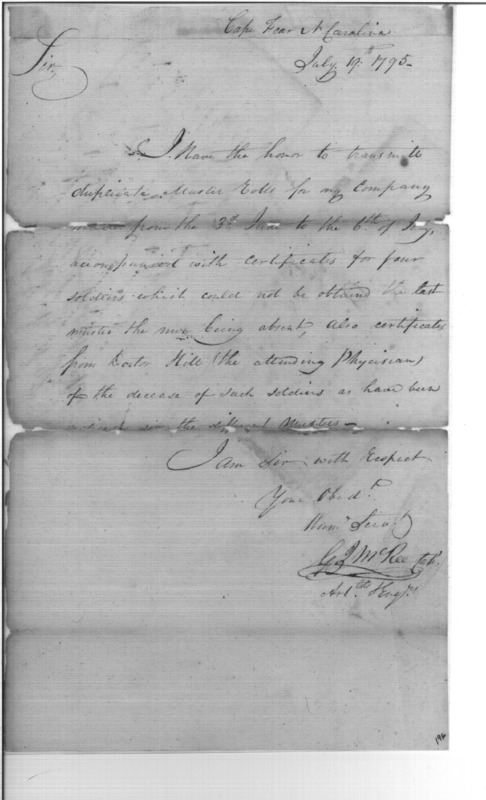 Cape Fear N Carolina
July 19th 1795-
Sir,
I Have the honor to transmitt
duplicate Muster Rolls for my Company
from the 3d June to the 6th of
accompanied with certificates for four
soldiers which could not be obtained the last
muster the men being absent, also certificates
from Doctor Hill (the attending Physician)
of the decease of such soldiers as have been
in the different Musters-
I am Sir with Respect
Your Obedt.
Humb Servt
G J McRee Capt.
Artsts & Engrs